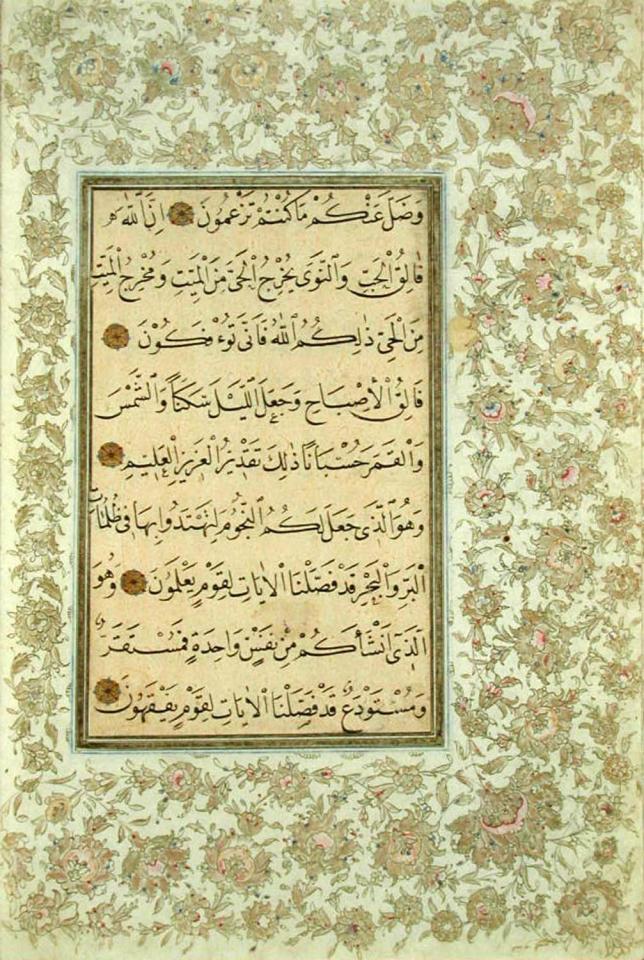 وَضَلَّ عَنْكُمْ مَا كُنْتُمْ تَزْعُمُونَ اِنَّ اللّٰهَ
فَالِقُ الْحَبِّ وَالنَّوٰى يُخْرِجُ الْحَيَّ مِنَ الْمَيِّتِ وَمُخْرِجُ الْمَيِّتِ
مِنَ الْحَيِّ ذٰلِكُمُ اللّٰهُ فَاَنّٰى تُؤْفَكُونَ
فَالِقُ الْاِصْبَاحِ وَجَعَلَ الَّيْلَ سَكَنًا وَالشَّمْسَ
وَالْقَمَرَ حُسْبَانًا ذٰلِكَ تَقْدِيرُ الْعَزِيزِ الْعَلِيمِ
وَهُوَ الَّذِى جَعَلَ لَكُمُ النُّجُومَ لِتَهْتَدُوا بِهَا فِى ظُلُمَاتِ
الْبَرِّ وَالْبَحْرِ قَدْ فَصَّلْنَا الْاٰيَاتِ لِقَوْمٍ يَعْلَمُونَ وَهُوَ
الَّذِٓى اَنْشَاَكُمْ مِنْ نَفْسٍ وَاحِدَةٍ فَمُسْتَقَرٌّ
وَمُسْتَوْدَعٌ قَدْ فَصَّلْنَا الْاٰيَاتِ لِقَوْمٍ يَفْقَهُونَ